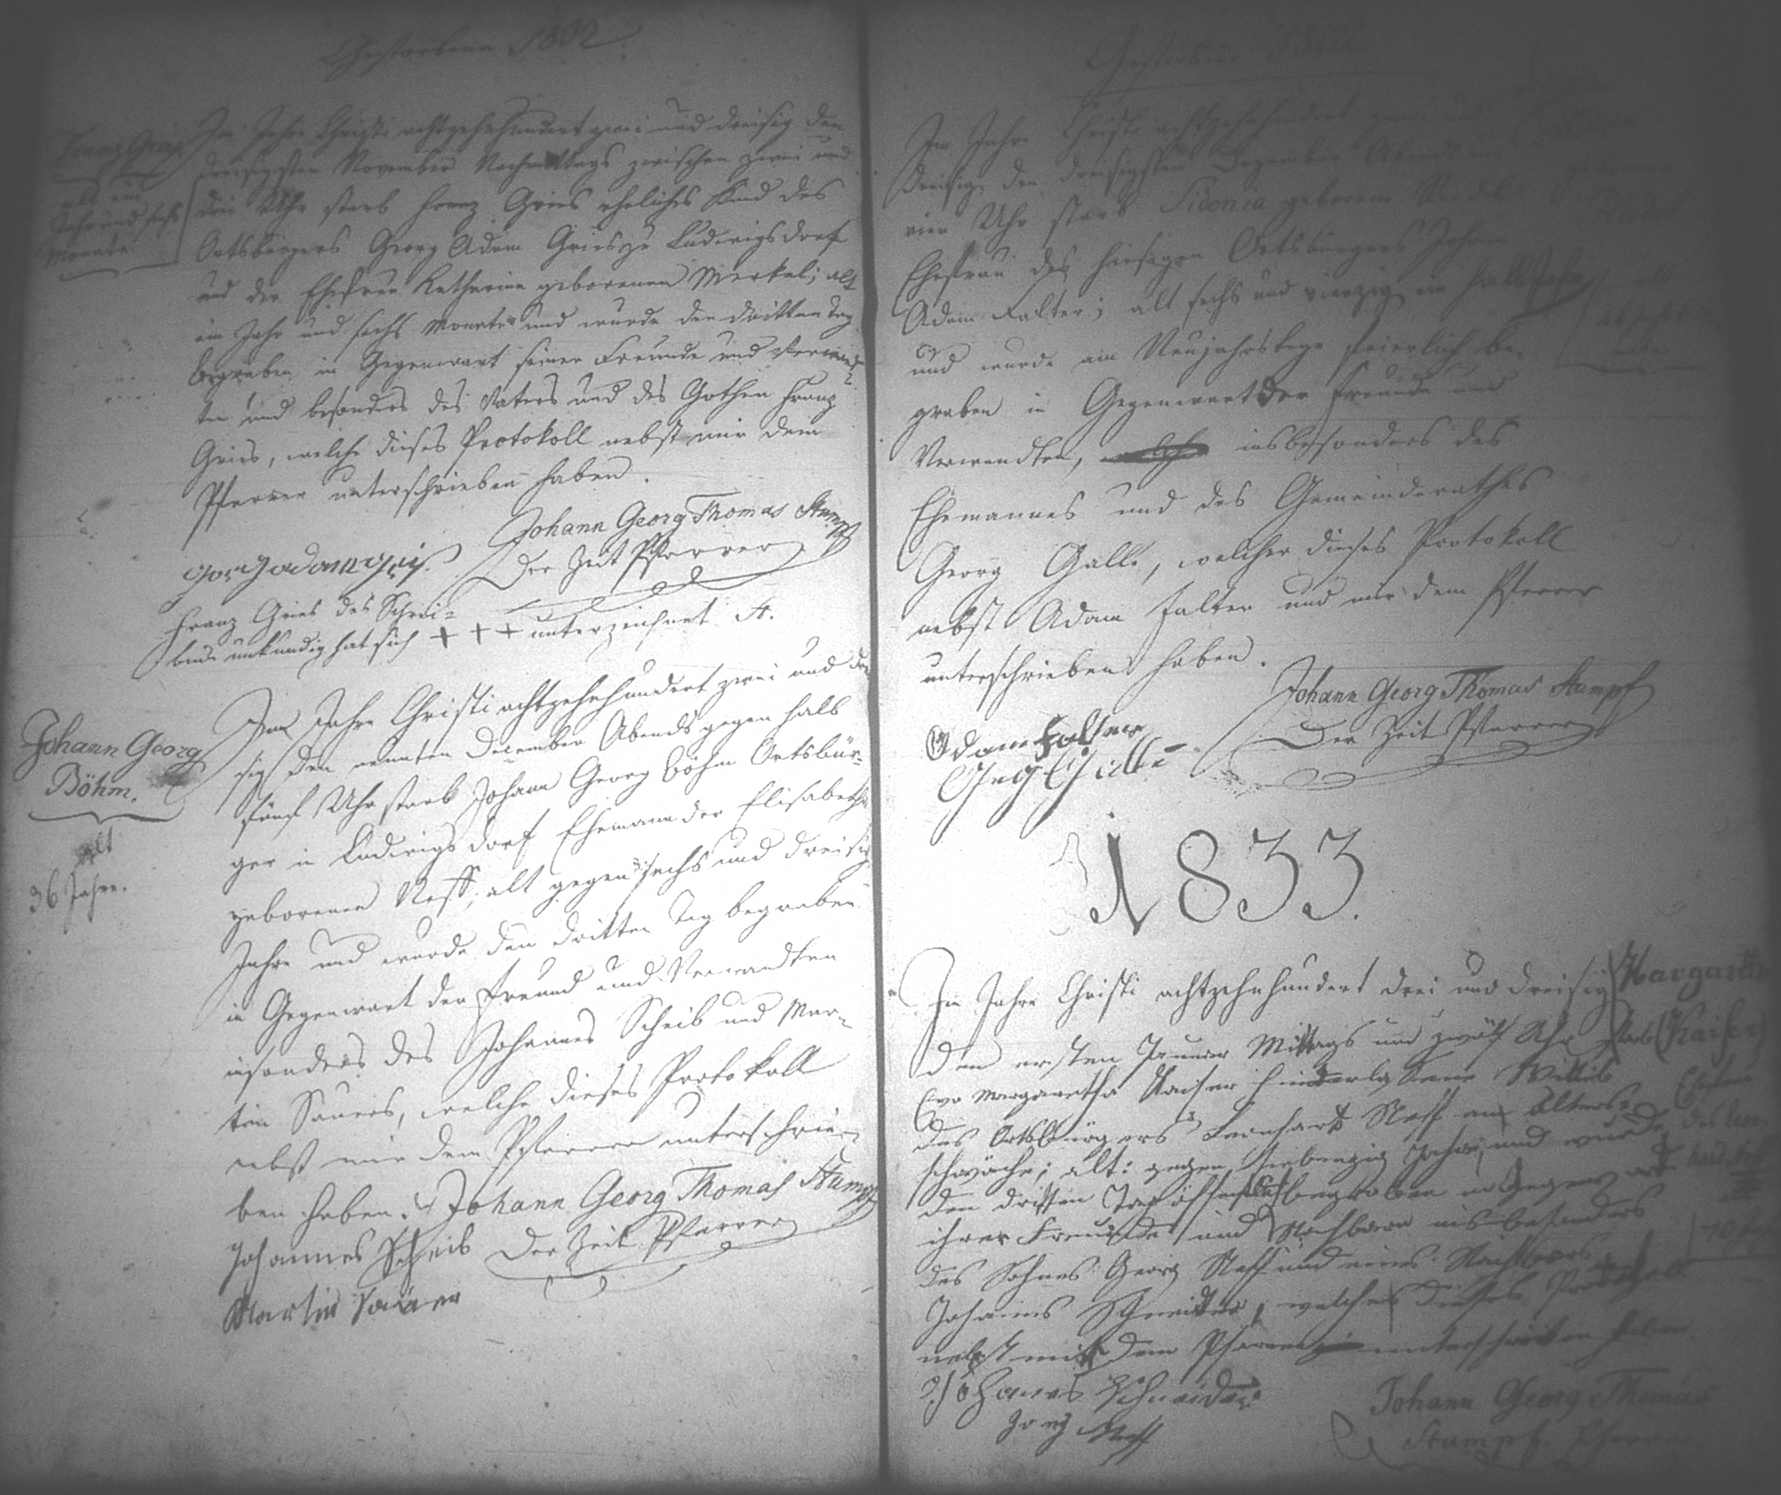 Gestorbene 1832.
Franz Gries
alt ein
Jahr und sechs
Monate
Im Jahre Christi achtzehnhundert zwei und dreisig den
dreisigsten November Nachmittags zwischen zwei und
drei Uhr starb Franz Gries eheliches Kind des
Ortsbürgers Georg Adam Gries zu Ludwigsdorf
und der Ehefrau Katharina geborenen Merkel; alt
ein Jahr und sechs Monate und wurde den dritten Tag
begraben in Gegenwart seiner Freunde und Verwand-
ten und besonders des Vaters und des Gothen Franz
Gries, welche dieses Protokoll nebst mir dem
Pfarrer unterschrieben haben.
Johann Georg Thomas Stumpf
Der Zeit Pfarrer
Franz Gries des Schrei=
bens unkundig hat sich + + + unterzeichnet St.
Johann Georg
Böhm.
alt
36 Jahre.
Im Jahre Christi achtzehnhundert zwei und drei-
sig den neunten December Abends gegen halb
fünf Uhr starb Johann Georg Böhm Ortsbür-
ger in Ludwigsdorf Ehemann der Elisabetha
geborenen Neff; alt gegen sechs und dreisig
Jahre und wurde den dritten Tag begraben
in Gegenwart der Freund und Verwandten
insonders des Johannes Scheib und Mar-
tin Sauers, welche dieses Protokoll
nebst mir dem Pfarrer unterschrie-
ben haben. Johann Georg Thomas Stumpf
Johannes Scheib Der Zeit Pfarrer
Martin Sauer
Gestorbene
Im Jahre Christi achtzehnhundert zwei und
dreisig den dreisigsten Dezember Abends
vier Uhr starb Sidonia geborene
Ehefrau des hiesigen Ortsbürgers Johann
Adam Falter; alt sechs und vierzig ein halb Jahr
und wurde am Neujahrstage feierlich be-
graben in Gegenwart der Freunde und
Verwandten, insbesonders des
Ehemannes und des Gemeinderathes
Georg Galli, welcher dieses Protokoll
nebst Adam Falter und mir dem Pfarrer
unterschrieben haben.
Johann Georg Thomas Stumpf
Der Zeit Pfarrer
Adam Falter
1833.
Im Jahre Christi achtzehnhundert drei und dreisig
den ersten Januar Mittags um zwölf Uhr starb
Eva Margaretha Kaiser hinterlassene Wittib
des Ortsbürgers Leonhard Neff an Alters-
schwäche; alt: gegen siebenzig Jahre, und wurde
den dritten Tag begraben in Gegenwart
ihrer Freunde und Nachbarn insbesonders
des Sohnes Georg Neff und eines Nachbars
Johannes Schneider, welche dieses Protokoll
nebst mir dem Pfarrer unterschrieben haben
Margaretha
Kaiser
Johannes Schneider
Georg Neff
Johann Georg Thomas
Stumpf. Pfarrer